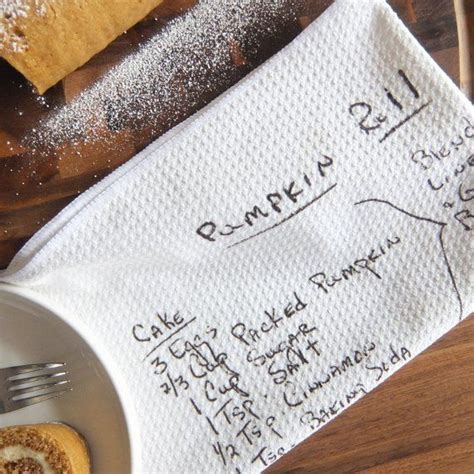 Pumpkin Roll
Cake
3 Eggs
2/3 Cup Packed Pumpkin
1 Cup Sugar
1 Tsp. Salt
1/2 Tsp Cinnamon
1 Tsp. Baking Soda
Blen
Line